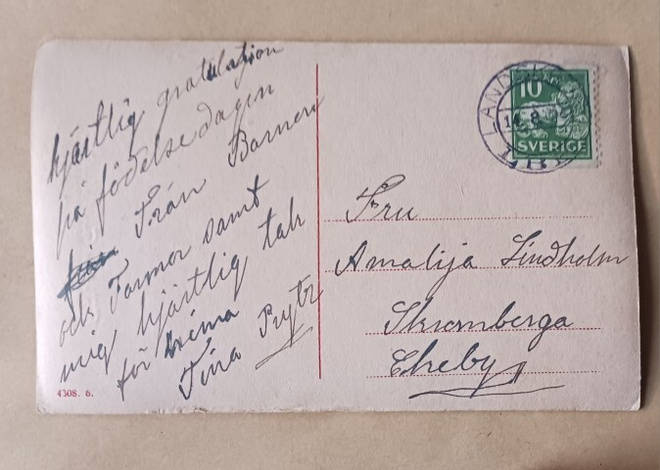 hjärtlig gratulation
på födelsedagen
Från Barnen
och Farmor samt
mig hjärtlig tak
för
Tina Prytz
4308. 6.
LANDSK
10
14 8
SVERIGE
Fru
Amalija Lindholm
Skromberga
Ekeby